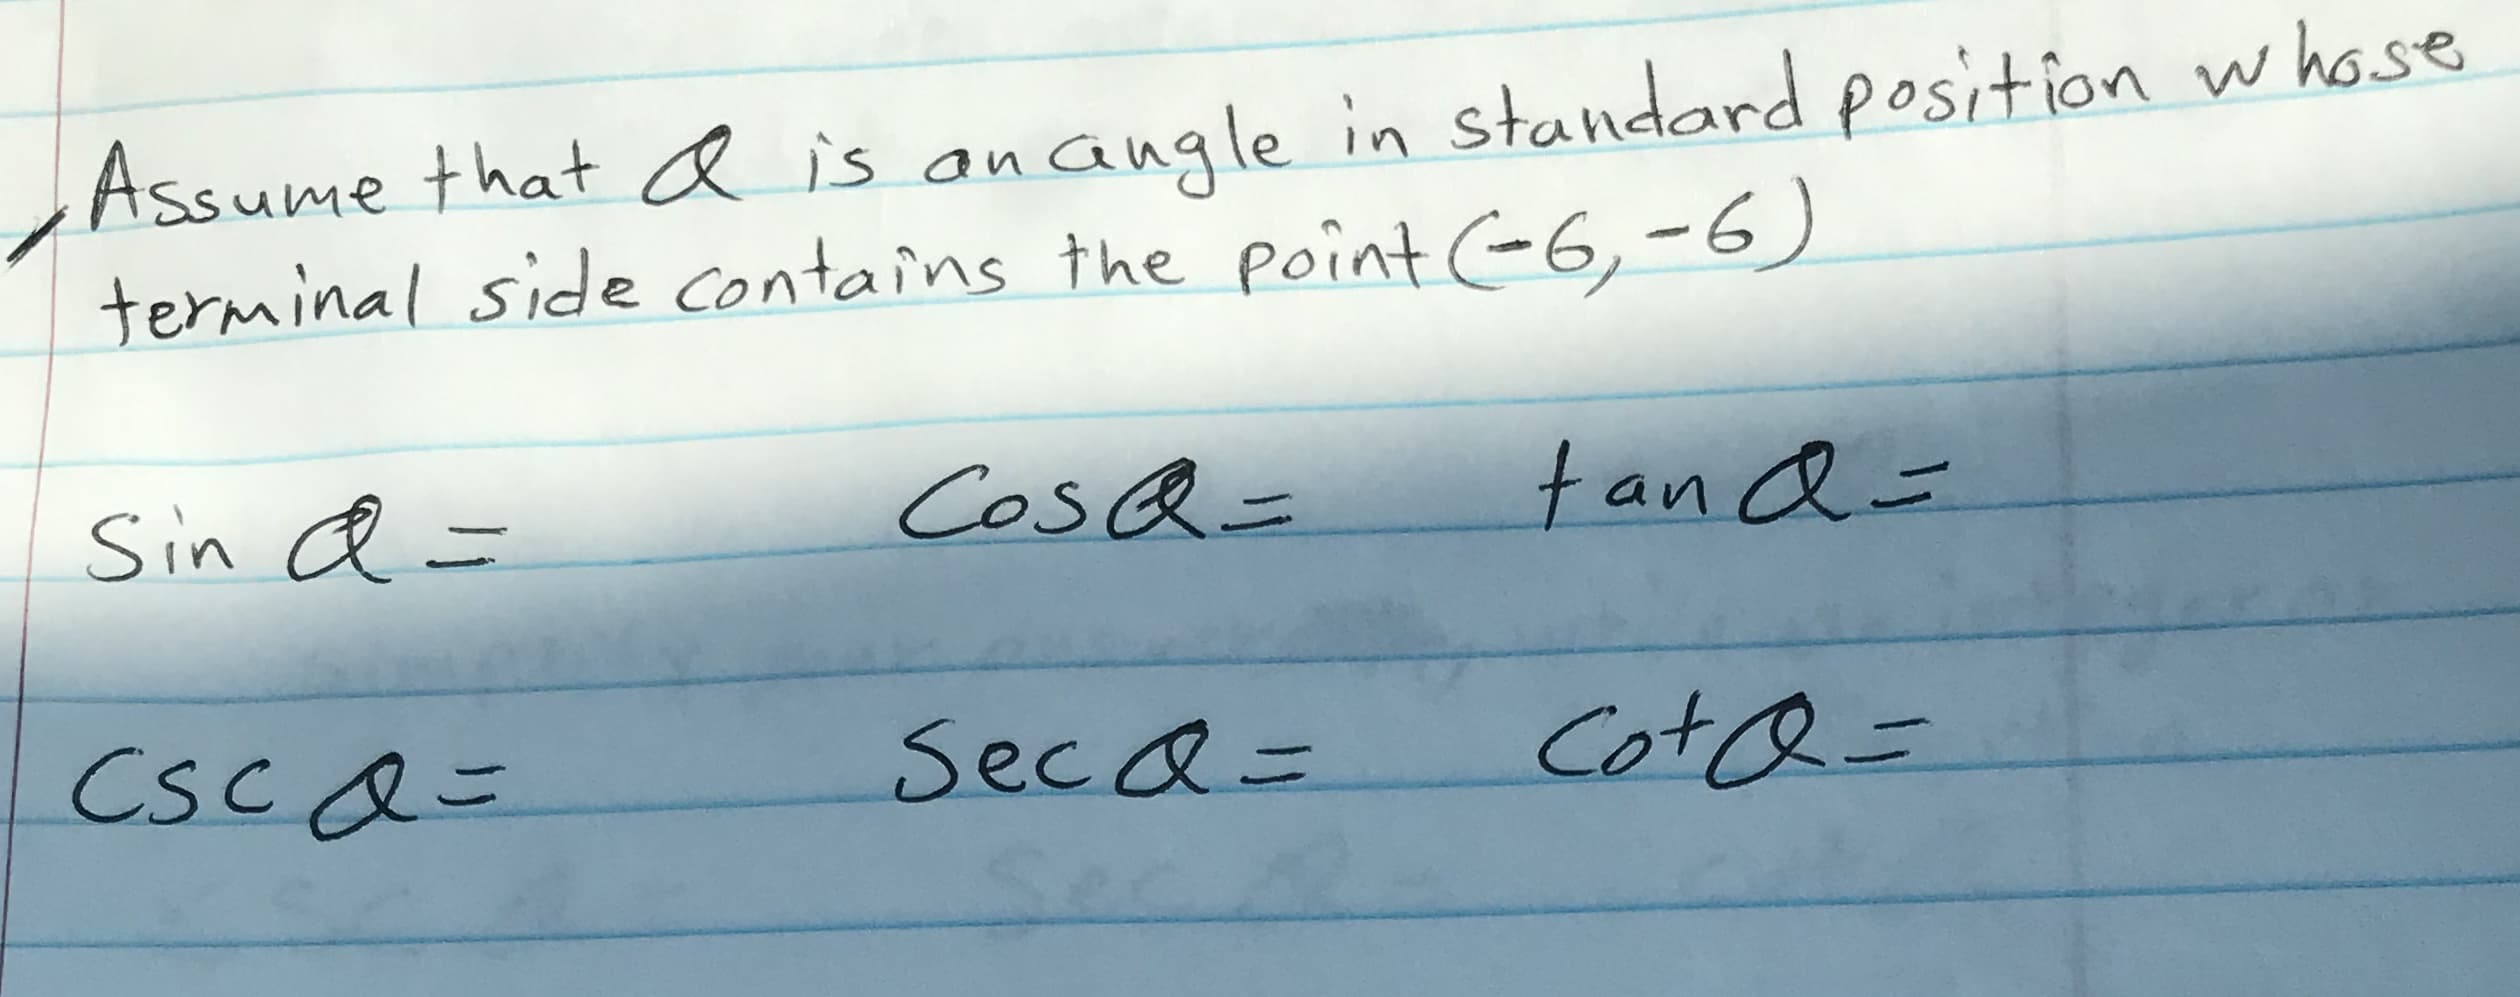 Assume that Q is an angle in standard position whose
terminal side contains the point (-6, -6)
Sin Q = Cos Q = tan Q =
Csc Q = Sec Q = Cot Q =